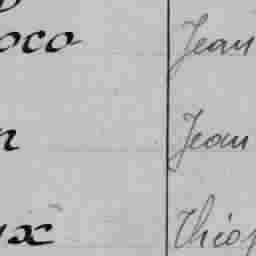 oco Jean
n Jean
ux Théop